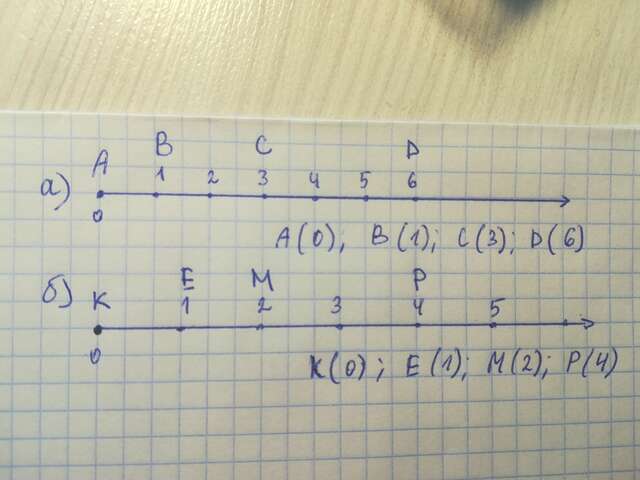 B C D
A 1 2 3 4 5 6
а)
0
A(0); B(1); C(3); D(6)
E M P
б) K 1 2 3 4 5
0
K(0); E(1); M(2); P(4)